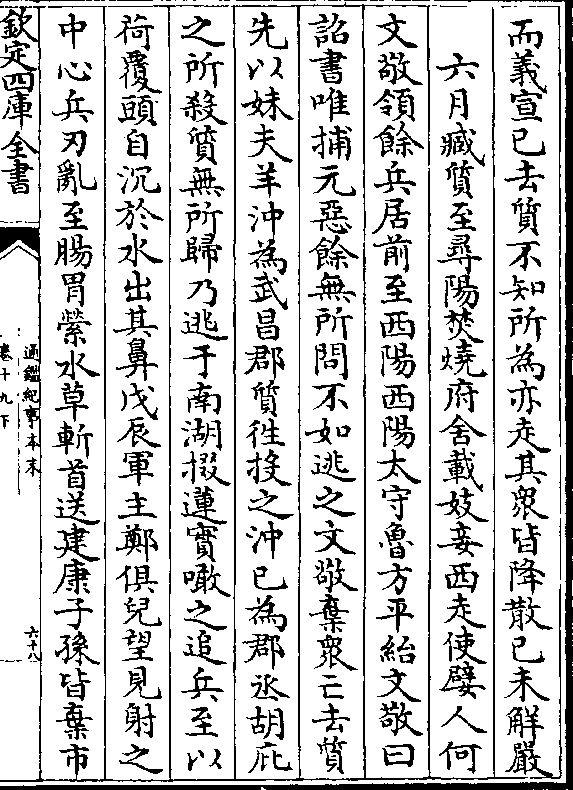 而義宣已去質不知所為亦走其衆皆降散己未解嚴
六月臧質至尋陽焚燒府舍載妓妾西走使嬖人何
文敬領餘兵居前至西陽西陽太守魯方平紿文敬曰
詔書唯捕元惡餘無所問不如逃之文敬棄衆亡去質
先以妹夫羊沖為武昌郡質徃投之沖已為郡丞胡庇
之所殺質無所歸乃逃于南湖掇蓮實噉之追兵至以
荷覆頭自沉於水出其鼻戊辰軍主鄭俱兒望見射之
中心兵刃亂至腸胃縈水草斬首送建康子孫皆棄市
欽定四庫全書
通鑑紀事本末
卷十九下
六十八